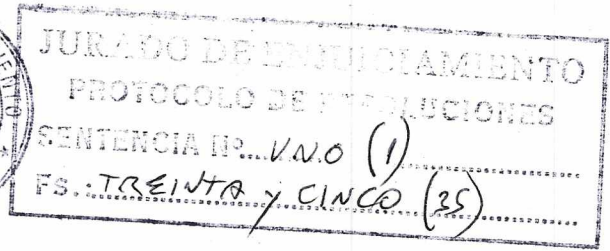 JURADO DE ENJUICIAMIENTO
PROTOCOLO DE RESOLUCIONES
SENTENCIA Nº... UNO (1)
FS.: TREINTA y CINCO (35)